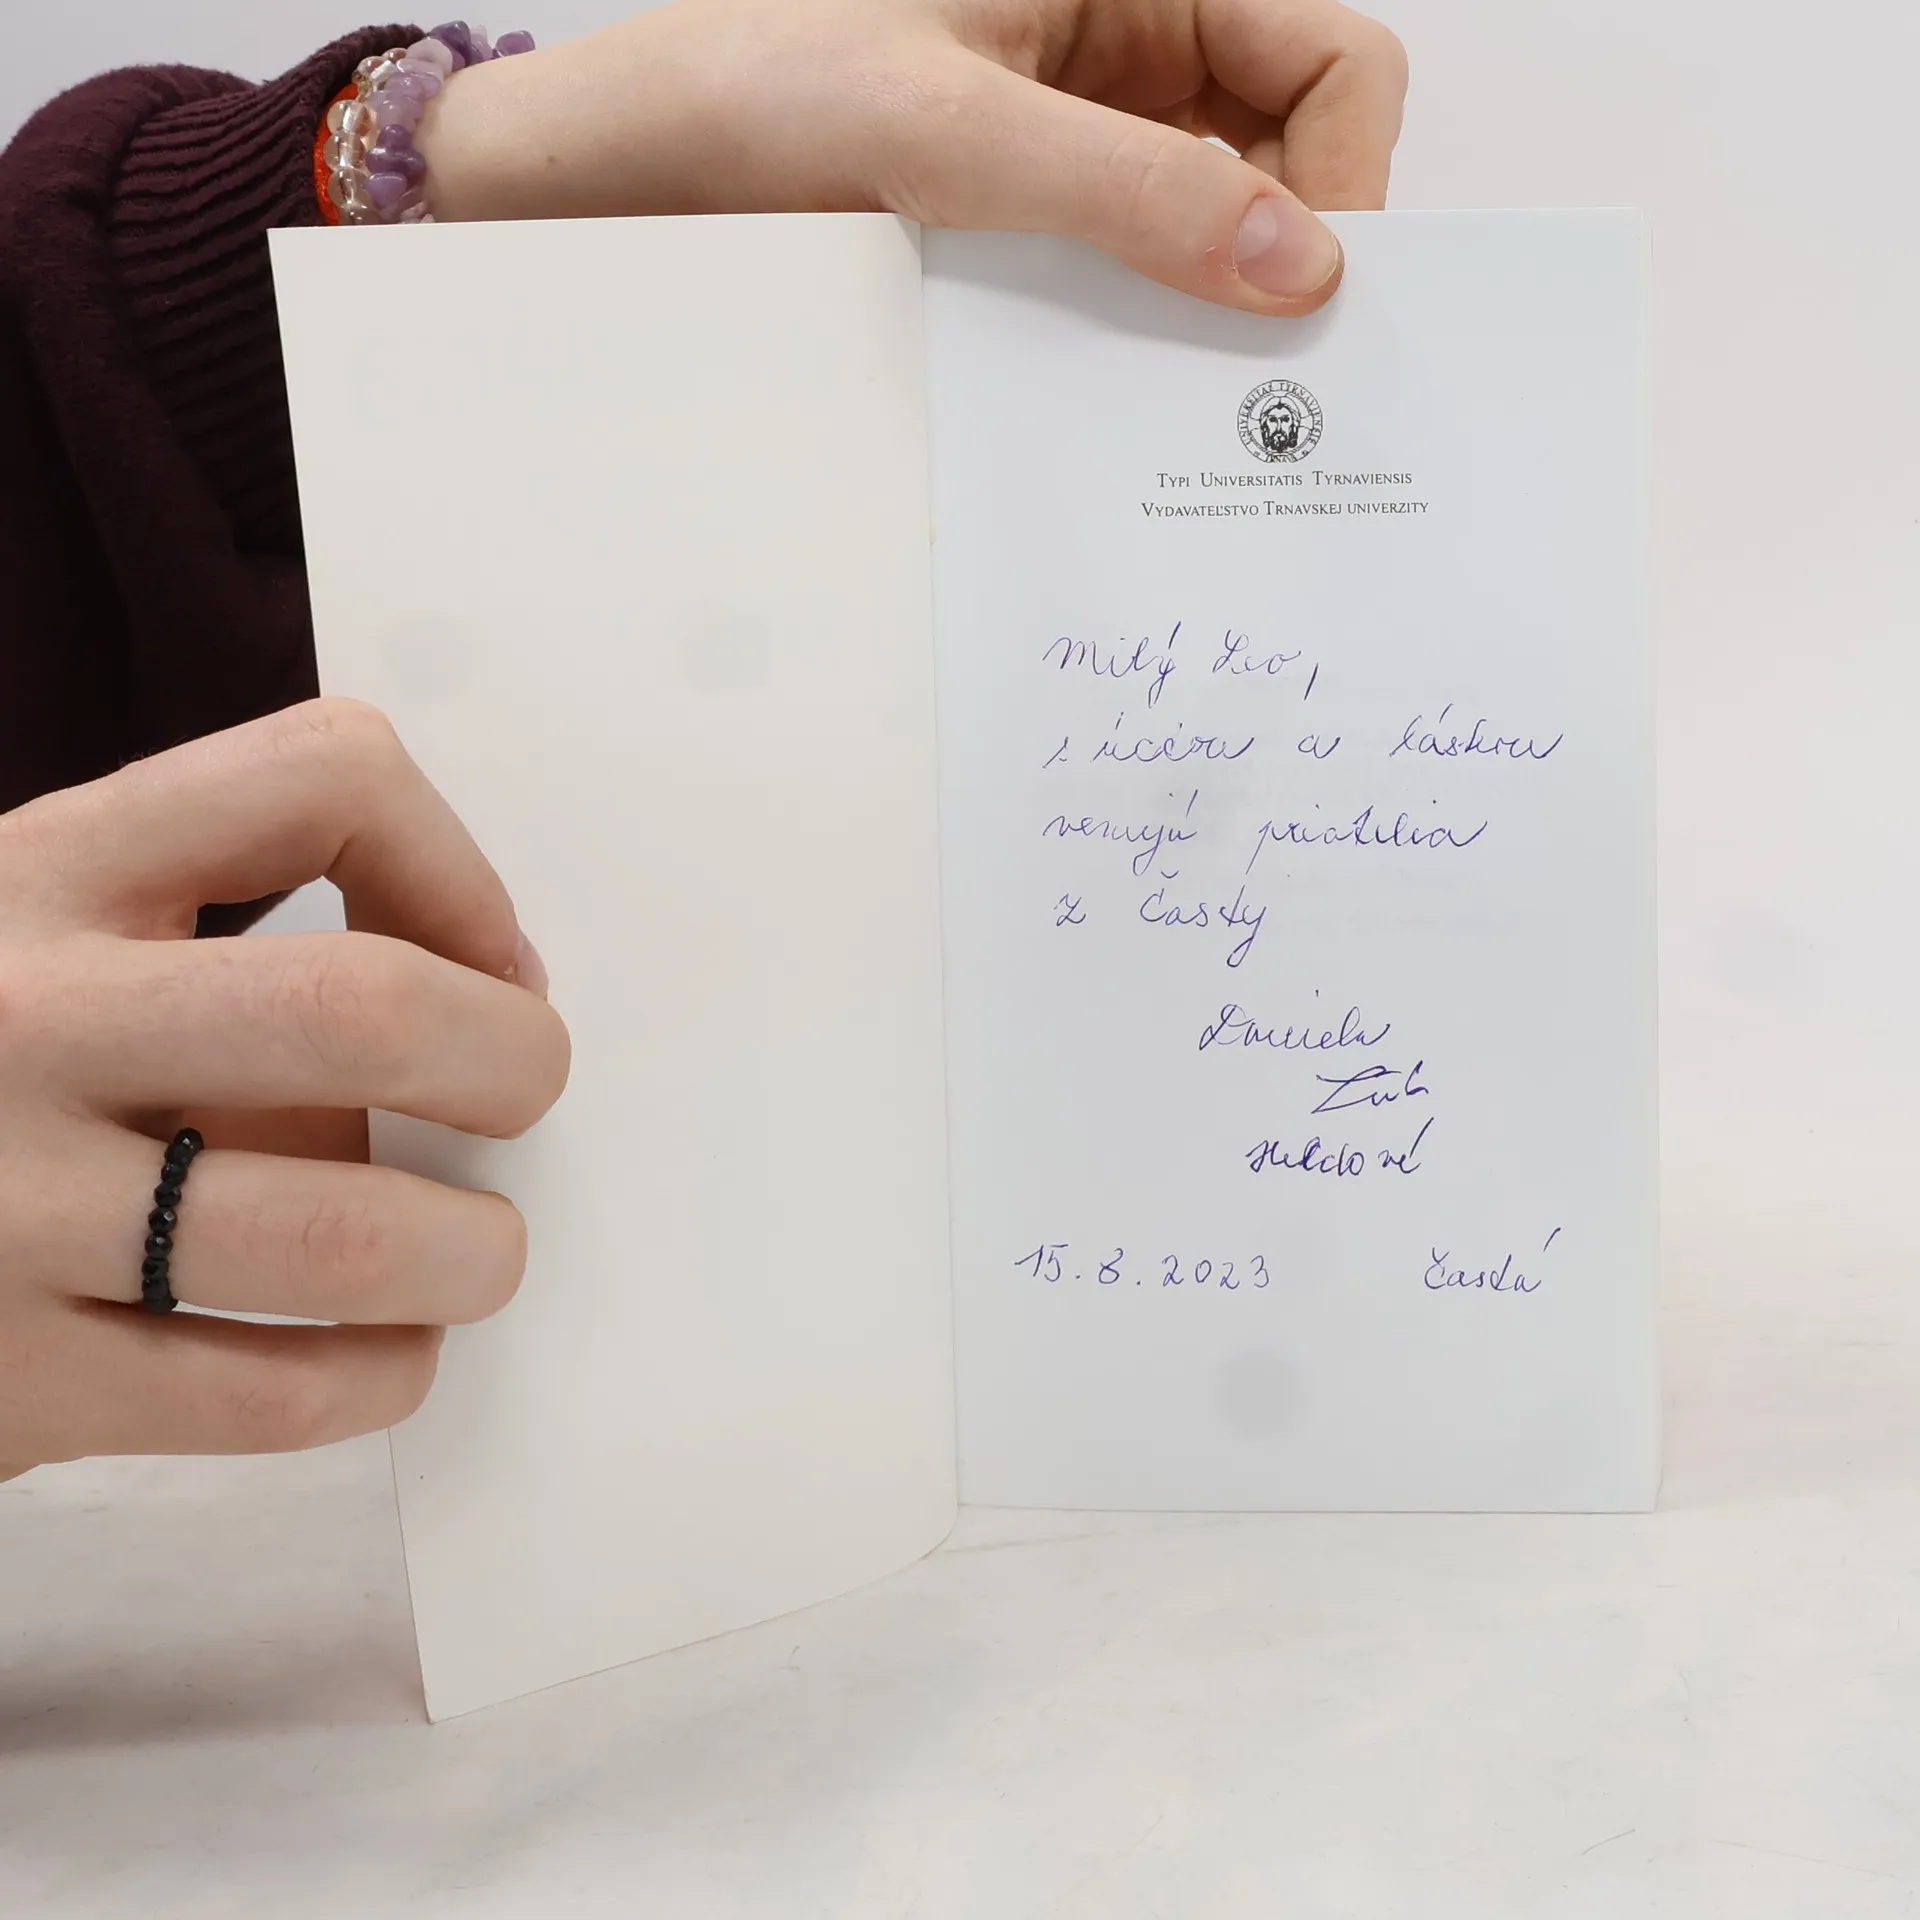 UNIVERSITAE TYRNAVIENSIS
TRNAVA
Typi Universitatis Tyrnaviensis
Vydavateľstvo Trnavskej univerzity
Milý Leo,
s úctou a láskou
venujú priatelia
z Časty
Daniela
15.8.2023 Častá